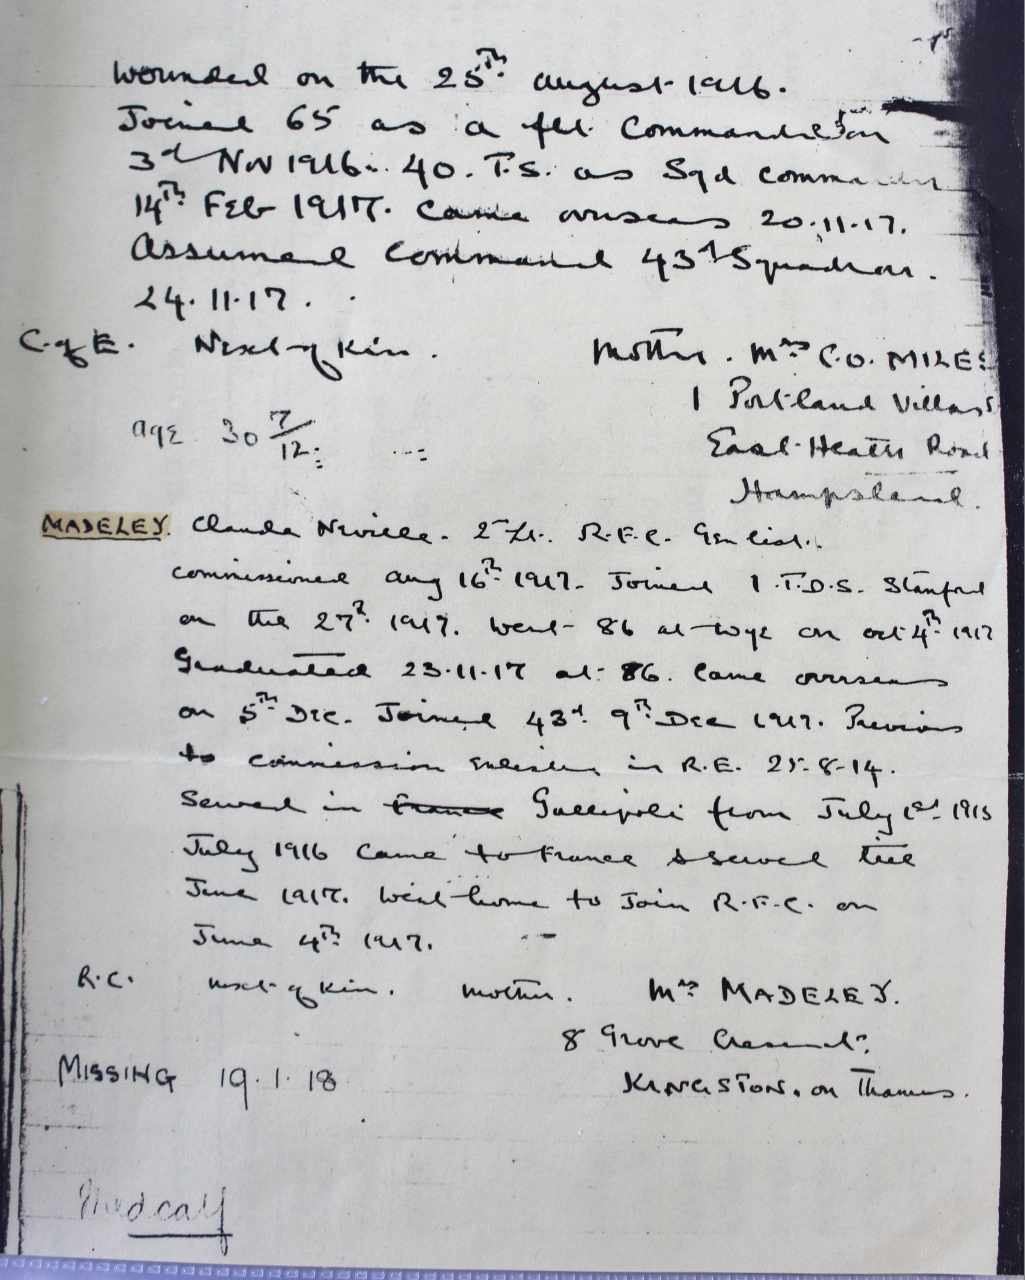 Wounded on the 25th August 1916.
Joined 65 as a flt Commander on
3rd Nov 1916. 40. T.S. as Sqd Commander
14th Feb 1917. Came overseas 20.11.17.
Assumed Command 43rd Squadron.
24.11.17.
C. of E. Next of Kin. Mother. Mrs C.O. MILES
1 Portland Villas
East Heath Road
Hampstead.
age 30 7/12
MADELEY. Claude Neville. 2nd Lt. R.F.C. Gen list.
commissioned Aug 16th 1917. Joined 1 T.D.S. Stamford
on the 27th 1917. Went 86 at Wye on Oct 4th 1917
Graduated 23.11.17 at 86. Came overseas
on 5th Dec. Joined 43rd 9th Dec 1917. Previous
to commission enlisted in R.E. 25-8-14.
Served in France Gallipoli from July 1st 1915
July 1916 Came to France & served till
June 1917. Went home to Join R.F.C. on
June 4th 1917.
R.C. next of kin. mother. Mrs MADELEY.
8 Grove Crescent.
MISSING 19.1.18 KINGSTON. on Thames.
Medcalf